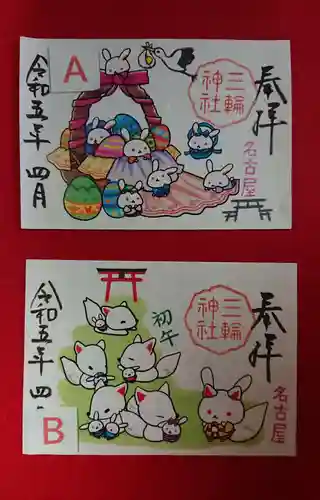 A
奉拝
三輪
神社
名古屋
令和五年 四月
初午
奉拝
三輪
神社
名古屋
令和五年 四
B